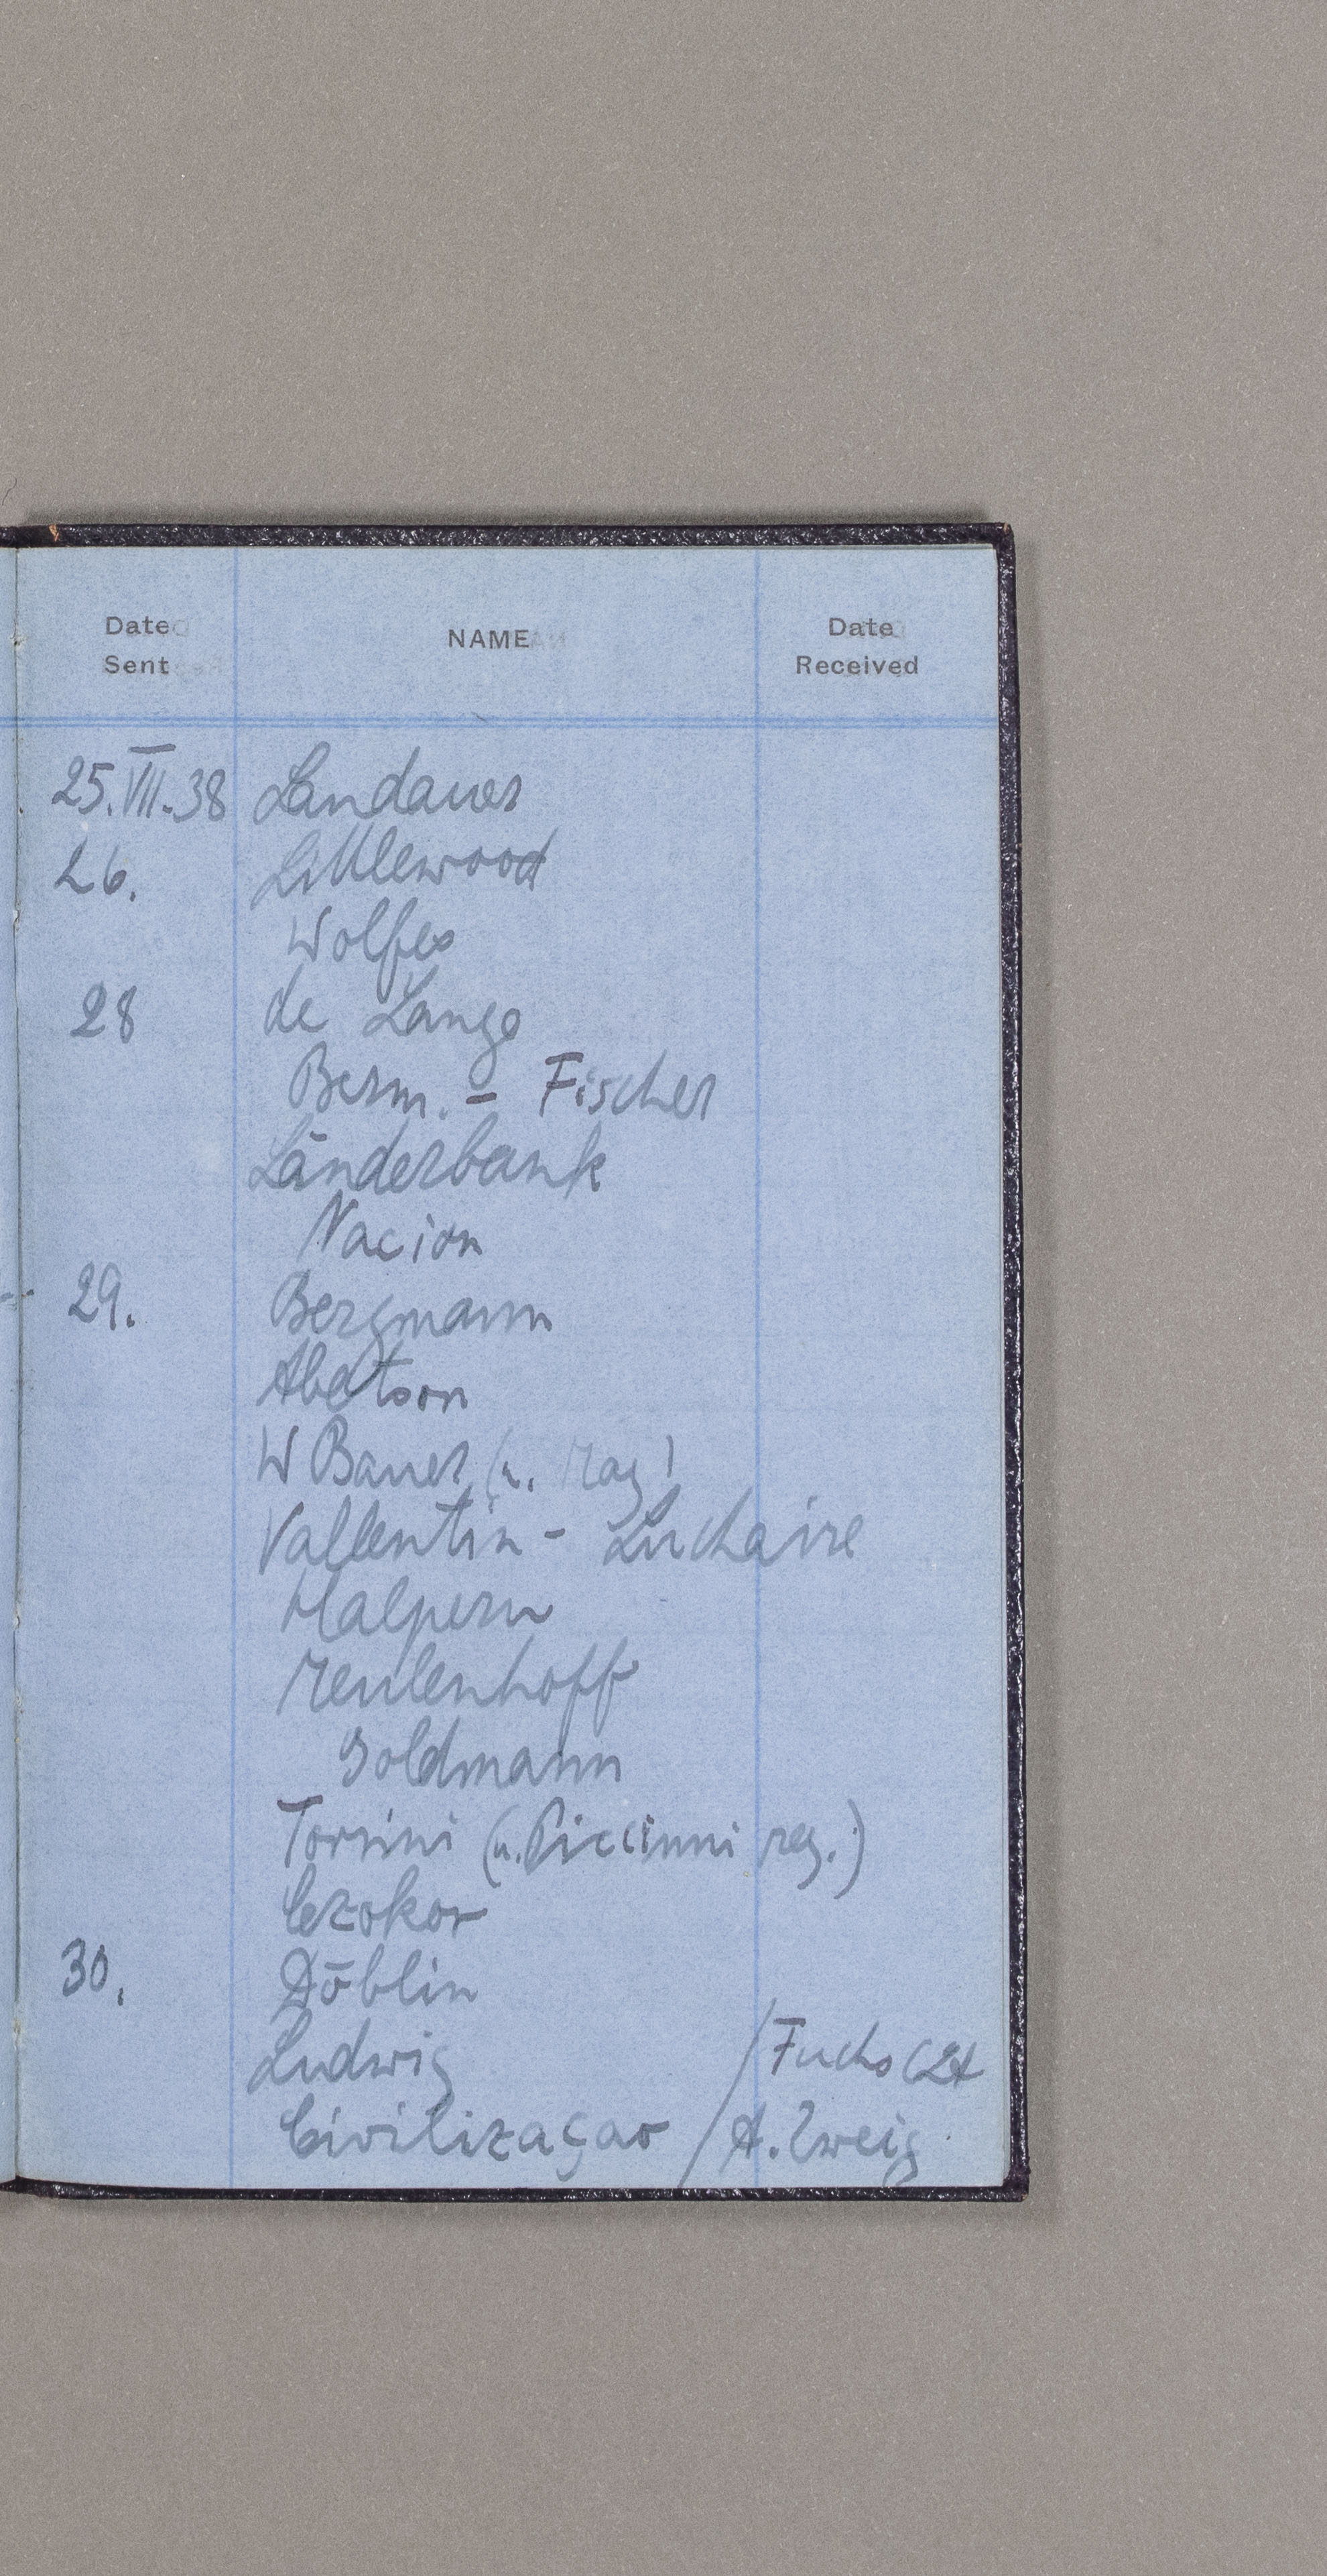 Date Sent NAME Date Received
25.VII.38 Landauer
26. Littlewood
Wolfes
28 de Lange
Berm. - Fischer
Länderbank
Nacion
29. Bergmann
Abatson
W Bauer (u.
Vallentin - Luchaire
Halpern
Meulenhoff
Goldmann
Torrini (u. Piccinni reg.)
Czokor
30. Döblin
Ludwig / Fuchs (2x
Civilizaçao / A. Zweig